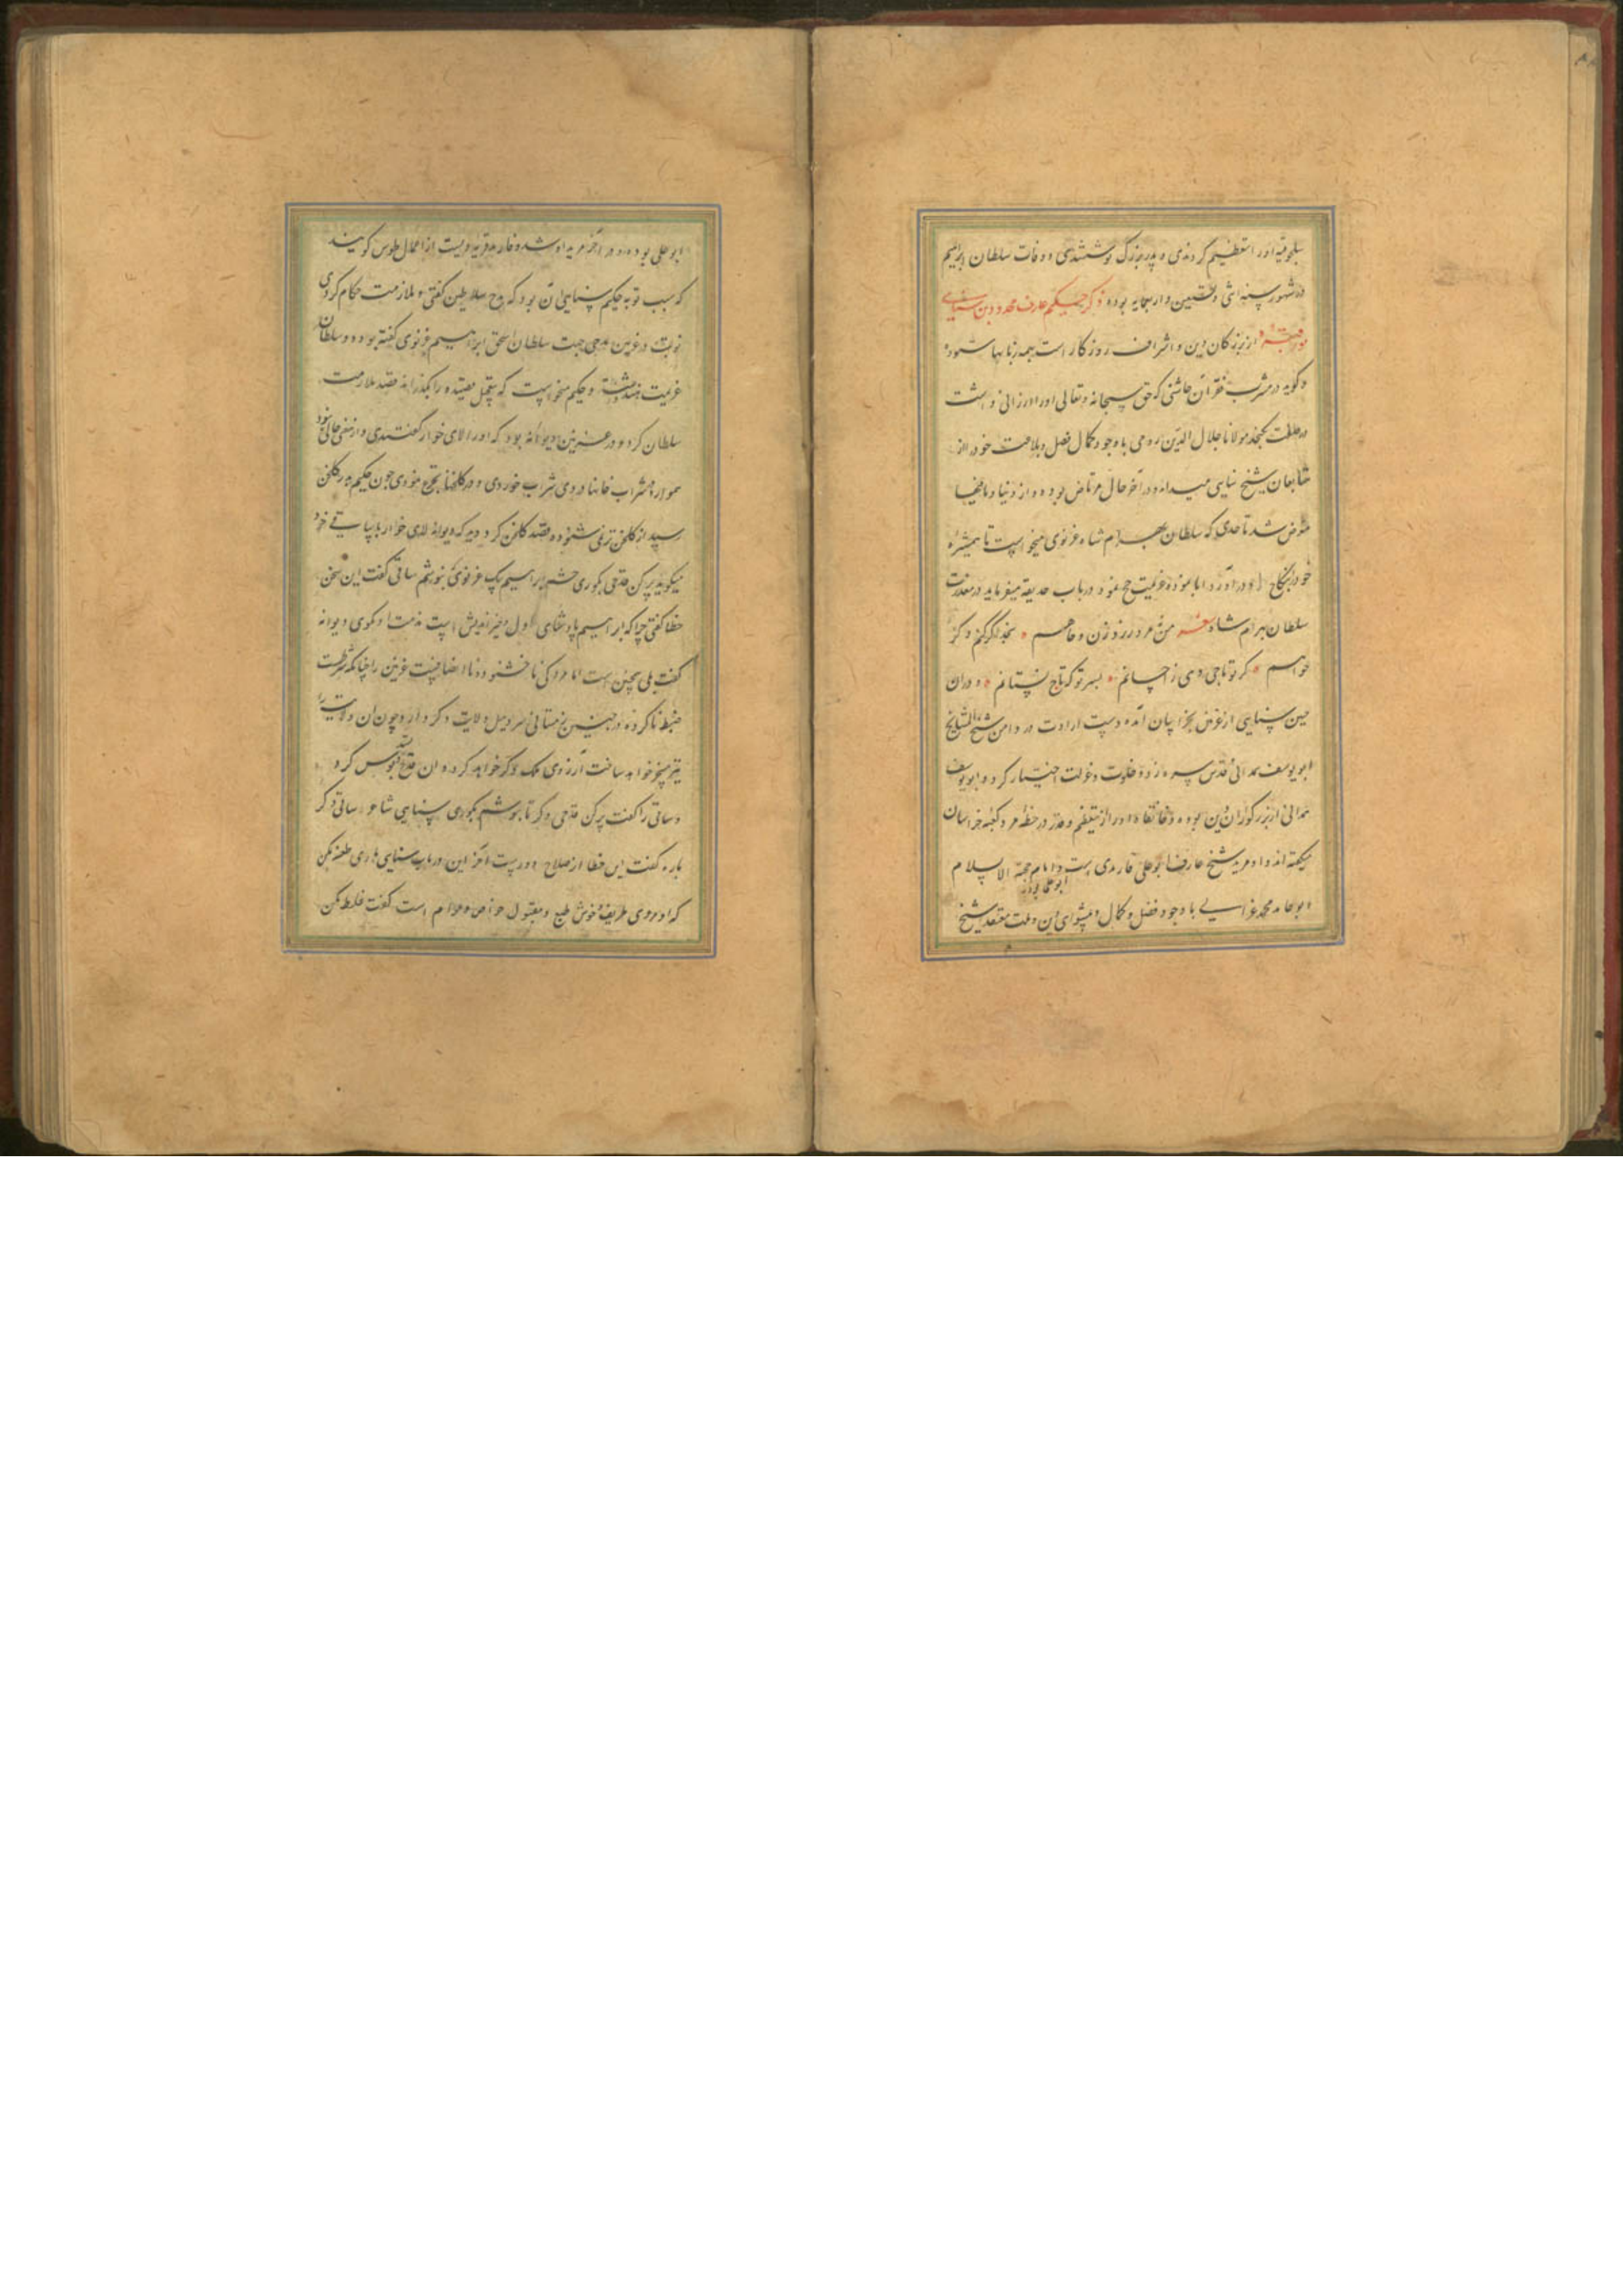 سلجوقیه او را تعظیم کردندی و پدر بزرگ نوشتندی و وفات سلطان ابراهیم
در شهور سنه اثنی و تسعین و اربعمایه بوده ذکر حکیم عارف مجدود بن سنایی
نور مرقده از بزرگان دین و اشراف روزگار است بهمه زبانها ستوده
و گویه در مشرب فقر آن چاشنی که حق سبحانه و تعالی او را ارزانی داشت
در نگنجد مولانا جلال الدین رومی باوجود کمال فضل و بلاغت خود را از
متابعان شیخ سنایی میداند و در آخر حال مرتاض بوده و از دنیا و مافیها
معرض شد تا حدی که سلطان بهرام شاه غزنوی میخواست تا همشیرهٔ
خود را بنکاح او در آورد ابا نموده عزیمت حج نمود و در باب حدیقه میفرماید در معذرت
سلطان بهرام شاه شعر من نه مرد زر و زن و جاهم بخدا گر کنم و گر
خواهم گر تو تاجی دهی ز احسانم بسر تو که تاج نستانم و دران
حین سنایی از غزنین بخراسان آمده دست ارادت در دامن شیخ المشایخ
ابو یوسف همدانی قدس سره زده خلوت و عزلت اختیار کرد و ابو یوسف
همدانی از بزرگواران دین بوده و خانقاه او را از تعظیم و قدر در خطهٔ مرو کعبه خراسان
میگفته اند و او مرید شیخ عارف ابو علی فارمدی است و امام حجة الاسلام
ابو حامد محمد غزالی باوجود فضل و کمال و پیشوای دین و ملت معتقد شیخ
ابو علی بوده و در آخر مرید او شد و فارمد قریه ایست از اعمال طوس گویند
که سبب توبه حکیم سنایی آن بود که مدح سلاطین گفتی و ملازمت حکام کردی
نوبتی در غزنین مدحی جهت سلطان اسحق ابراهیم غزنوی گفته بود و سلطان
عزیمت هند داشت و حکیم میخواست که بتعجیل قصیده را بگذراند قصد ملازمت
سلطان کرد و در غزنین دیوانه بود که او را لای خوار گفتندی و از معنی خالی نبود
همواره در شراب خانها دردی شراب خوردی و در گلخنها تجرع نمودی چون حکیم بدر گلخن
رسید از گلخن ترنمی شنوده قصد گلخن کرد دید که دیوانه لای خوار با ساقی خود
میگوید پر کن قدحی بکوری چشم ابراهیمک غزنوی تا بنوشم ساقی گفت این سخن
خطا گفتی چرا که ابراهیم پادشاهی عادل و خیر اندیش است مذمت او مگوی دیوانه
گفت بلی چنین است اما مردکی ناخشنود و نا انصاف است غزنین را چنانکه شرطست
ضبط ناکرده در چنین زمستانی سرد میل ولایت دگر دارد و چون آن ولایت را
نیز مسخر خواهد ساخت آرزوی ملک دگر خواهد کرد و آن قدح بستد و نوش کرد
و ساقی را گفت پر کن قدحی دگر تا بنوشم بکوری سنایی شاعر ساقی دگر
باره گفت این خطا از صلاح دورست آخر این در باب سنایی شاعری طعنه مکن
که او مردی ظریف و خوش طبع و مقبول خواص و عوام است گفت غلط مکن